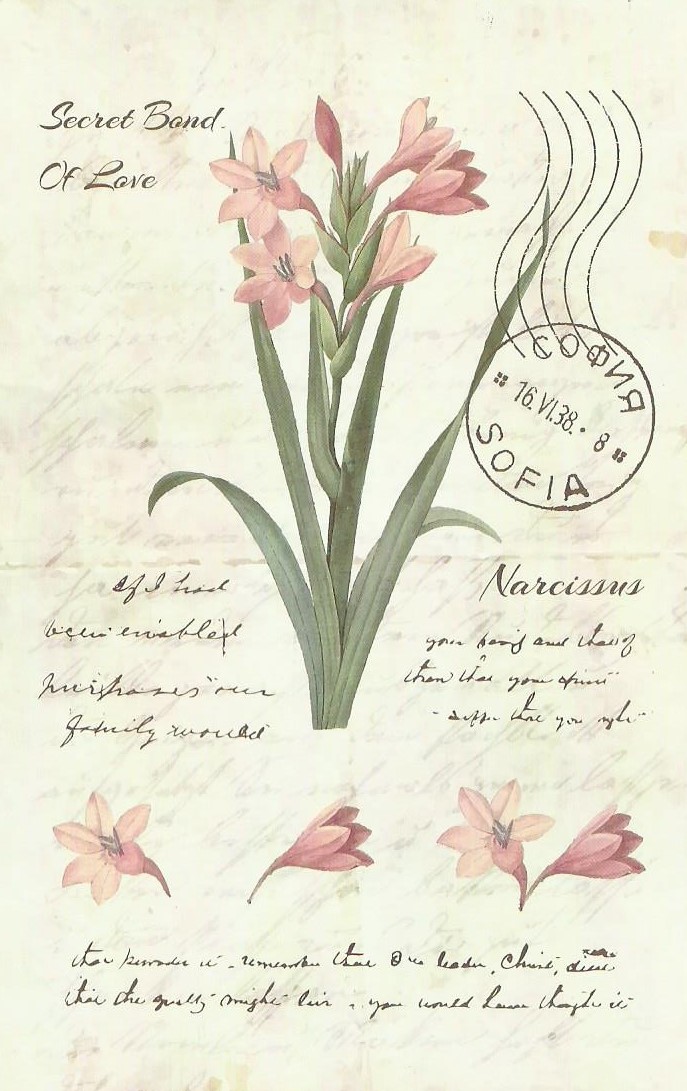 Secret Bond.
Of Love
СОФИЯ
16.VI.38. 8
SOFIA
Narcissus
if I had
been enabled
purchases our
family would
your and that of
than that your
that you
that it - remember that Our leader, Christ, died
that the guilty might live - you would have thought it